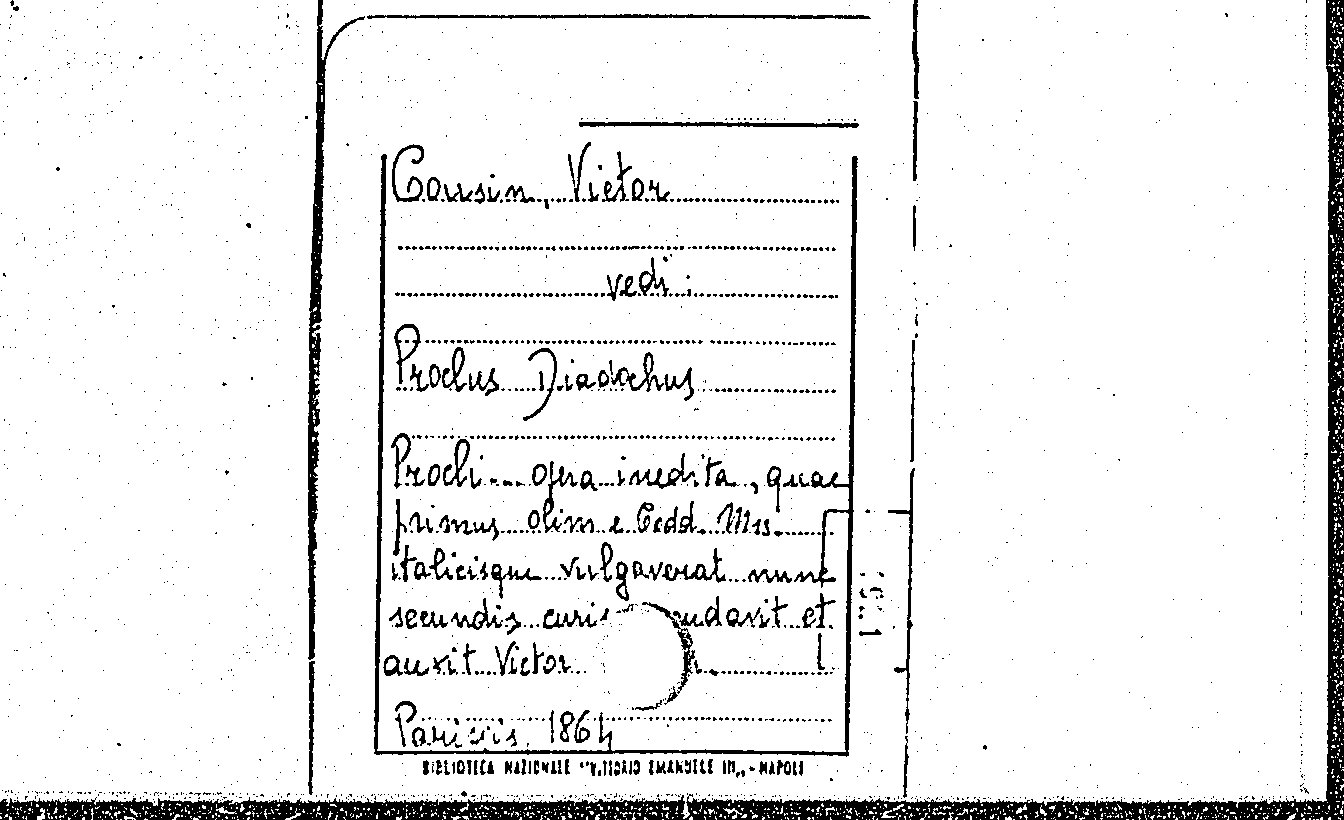 Cousin, Victor
vedi:
Proclus Diadochus
Procli... opera inedita, quae
primus olim e Codd. Mss.
italicisque vulgaverat nunc
secundis curis et
auxit Victor
Parisiis, 1864
BIBLIOTECA NAZIONALE "VITTORIO EMANUELE III" - NAPOLI